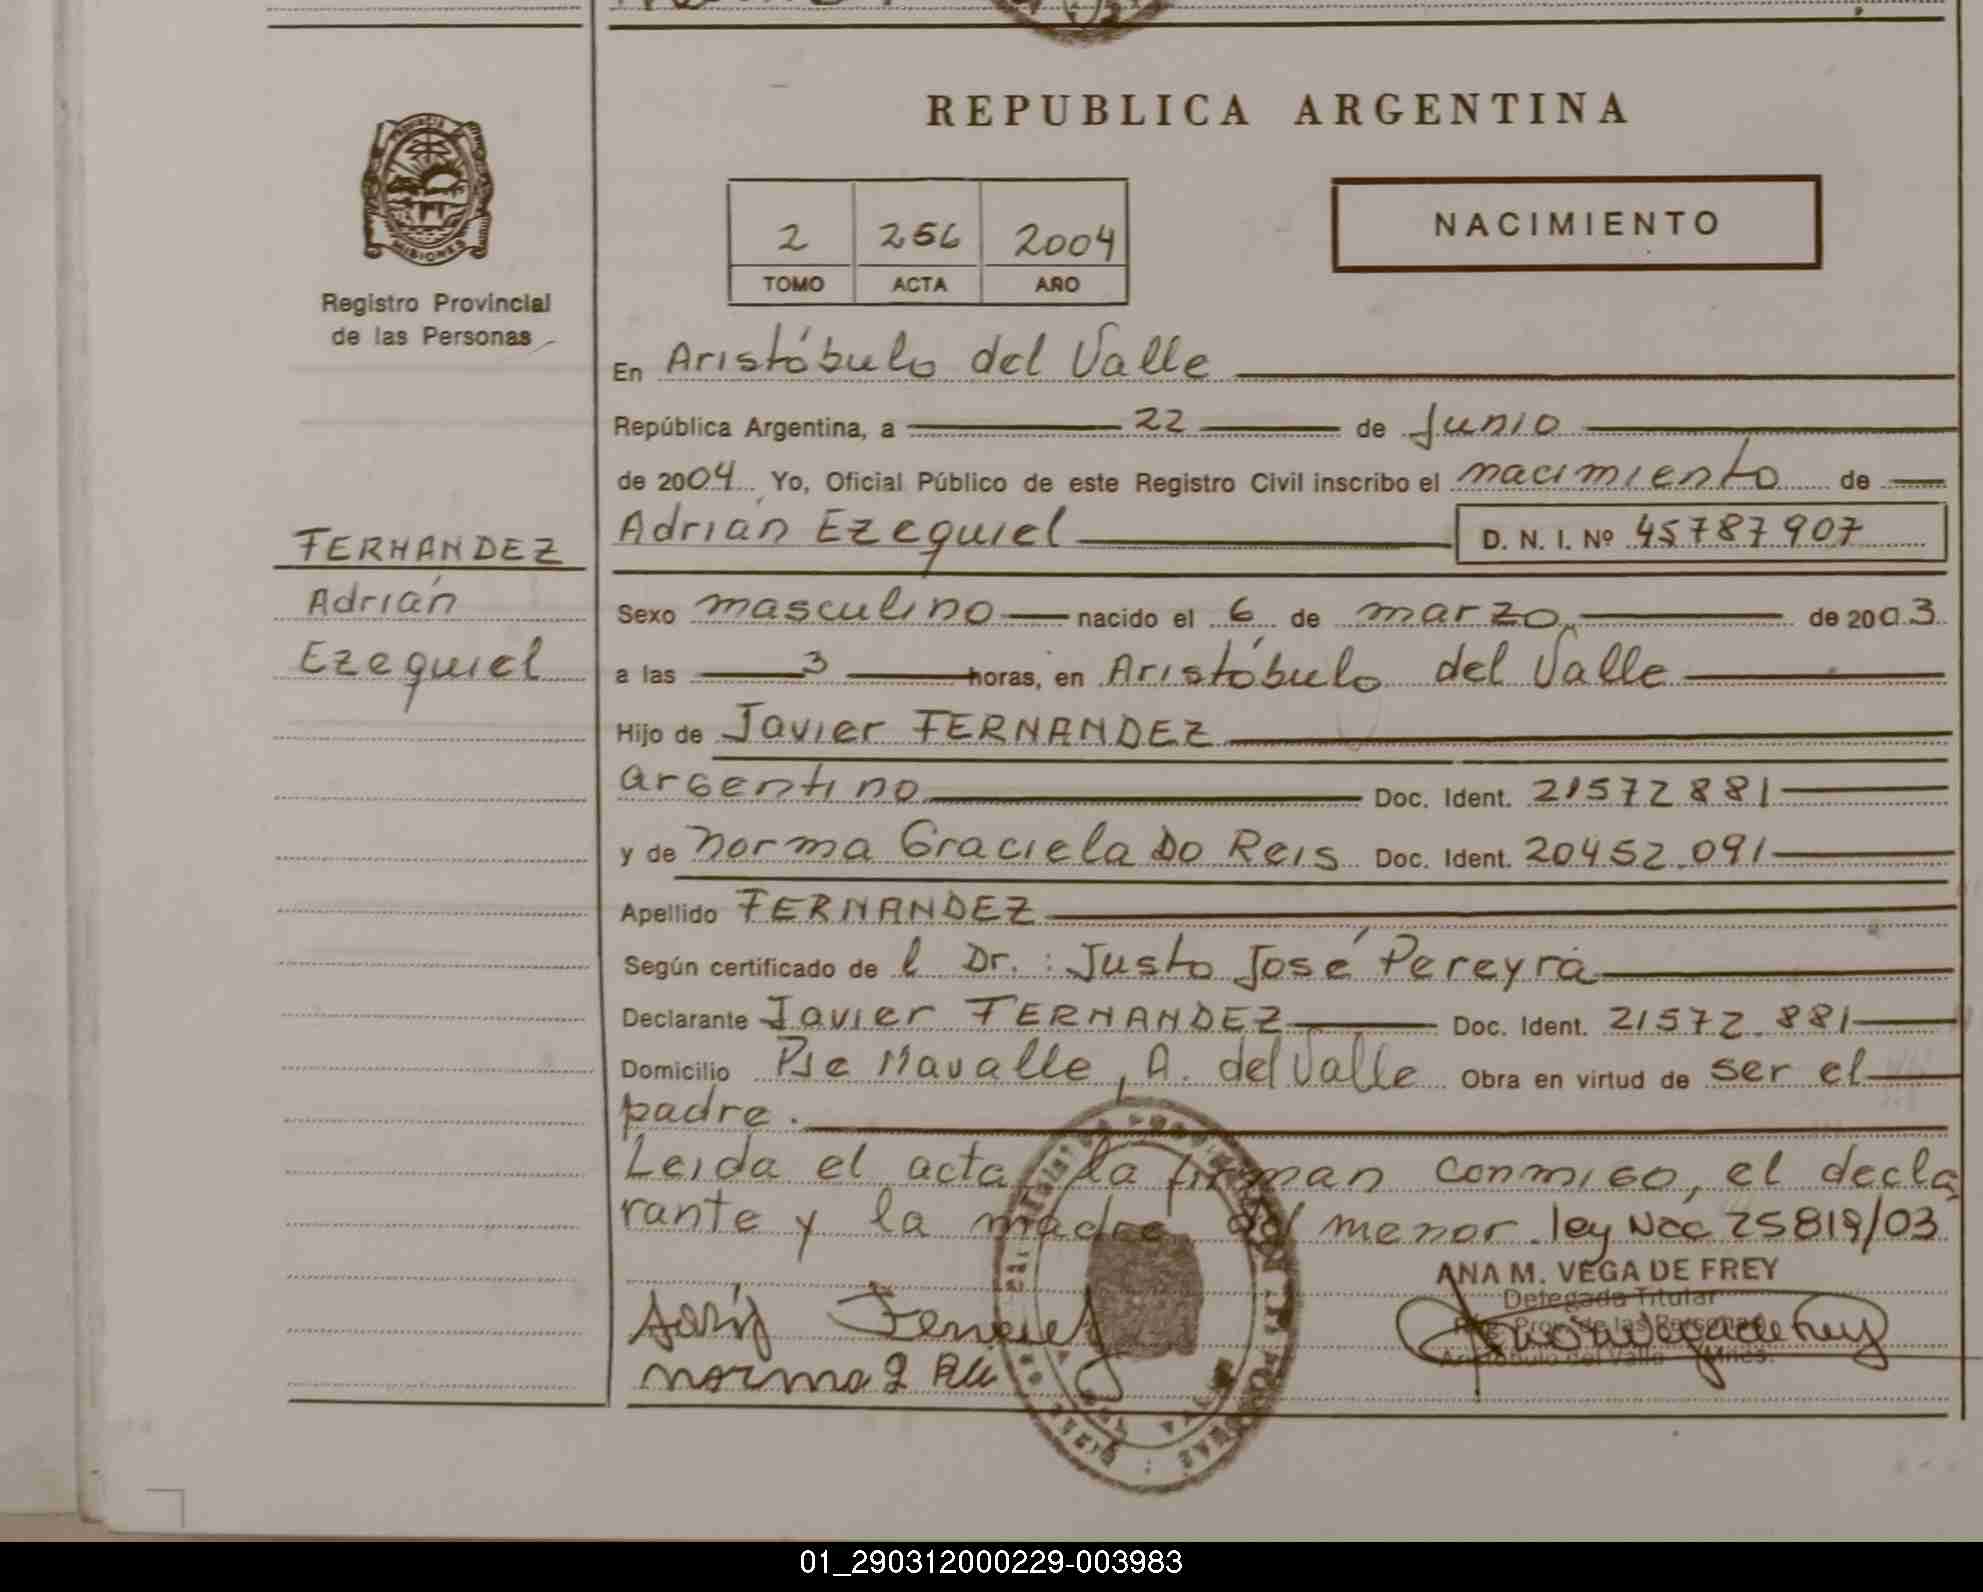 REPUBLICA ARGENTINA
NACIMIENTO
2 256 2004
TOMO ACTA AÑO
PROVINCIA
MISIONES
Registro Provincial
de las Personas
En Aristóbulo del Valle
República Argentina, a 22 de Junio
de 2004 Yo, Oficial Público de este Registro Civil inscribo el nacimiento de
Adrián Ezequiel D. N. I. Nº 45787907
FERNANDEZ
Adrián
Ezequiel
Sexo masculino nacido el 6 de marzo de 2003
a las 3 horas, en Aristóbulo del Valle
Hijo de Javier FERNANDEZ
argentino Doc. Ident. 21572881
y de Norma Graciela Do Reis Doc. Ident. 20452.091
Apellido FERNANDEZ
Según certificado de l Dr.: Justo José Pereyra
Declarante Javier FERNANDEZ Doc. Ident. 21572.881
Domicilio Pje Navalle, A. del Valle Obra en virtud de ser el
padre.
Leida el acta, la firman conmigo, el decla
rante y la madre del menor. ley Nac 25819/03
ANA M. VEGA DE FREY
Delegada Titular
Reg. Prov. de las Personas
Aristóbulo del Valle - Mnes.
01_290312000229-003983